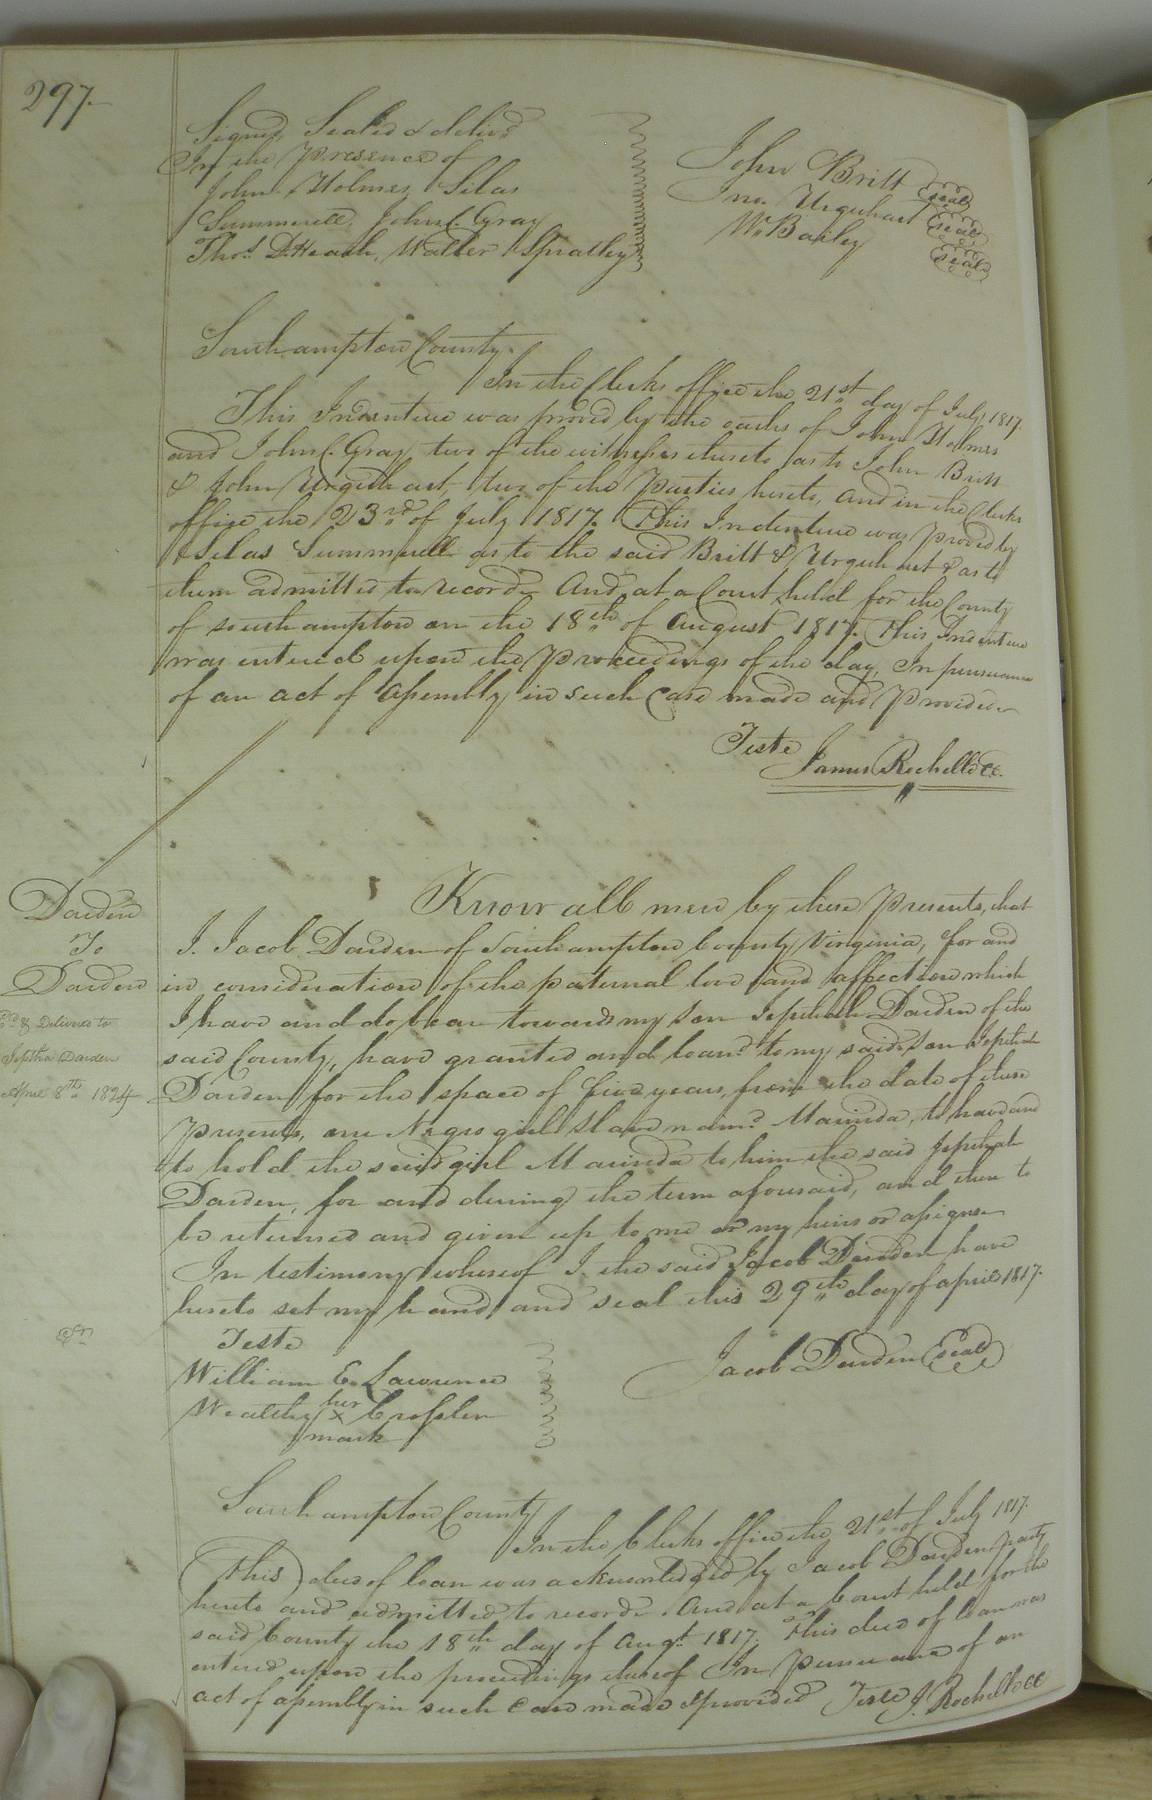 297.
Signed, Sealed & deliv.d
In the Presence of
John Holmes, Silas
Summerell, John C. Gray
Thos. D. Heath, Walter Spratley
John Britt seal
Jno. Urquhart seal
W. Bailey seal
Southampton County.
In the Clerks office the 21st day of July 1817.
This Indenture was proved by the oaths of John Holmes
and John C. Gray two of the witnesses thereto as to John Britt
& John Urquhart, two of the Parties hereto, and in the Clerks
office the 23rd of July 1817. This Indenture was proved by
Silas Summerell as to the said Britt & Urquhart & as to
them admitted to record. And at a Court held for the County
of southampton on the 18th of August 1817. This Indenture
was entered upon the proceedings of the day, In pursuance
of an act of Assembly in such Case made and Provided.
Teste
James Rochelle CC.
Darden
To
Darden
& Delivered to
Jeptha Darden
April 8th 1824
Know all men by these Presents, that
I. Jacob Darden of Southampton County Virginia, for and
in consideration of the paternal love and affection which
I have and do bear towards my son Jepthah Darden of the
said County, have granted and loand to my said son Jepthah
Darden for the space of five years, from the date of these
Presents, one Negro girl Slave nam.d Marinda, to have and
to hold the said girl Marinda to him the said Jepthah
Darden, for and during the term aforesaid, and then to
be returned and given up to me or my heirs or assigns.
In testimony whereof I. the said Jacob Darden have
hereto set my hand and seal this 29th day of april 1817.
Teste
William E. Lawrence
her
Wealthy x Crosslen
mark
Jacob Darden seal
Southampton County
In the Clerks office the 21st of July 1817.
This deed of loan was acknowledged by Jacob Darden party
hereto and admitted to record. And at a Court held for the
said County the 18th day of Augt. 1817. This deed of loan was
entered upon the proceedings thereof In Pursuance of an
act of assembly in such Case made & provided Teste J. Rochelle CC